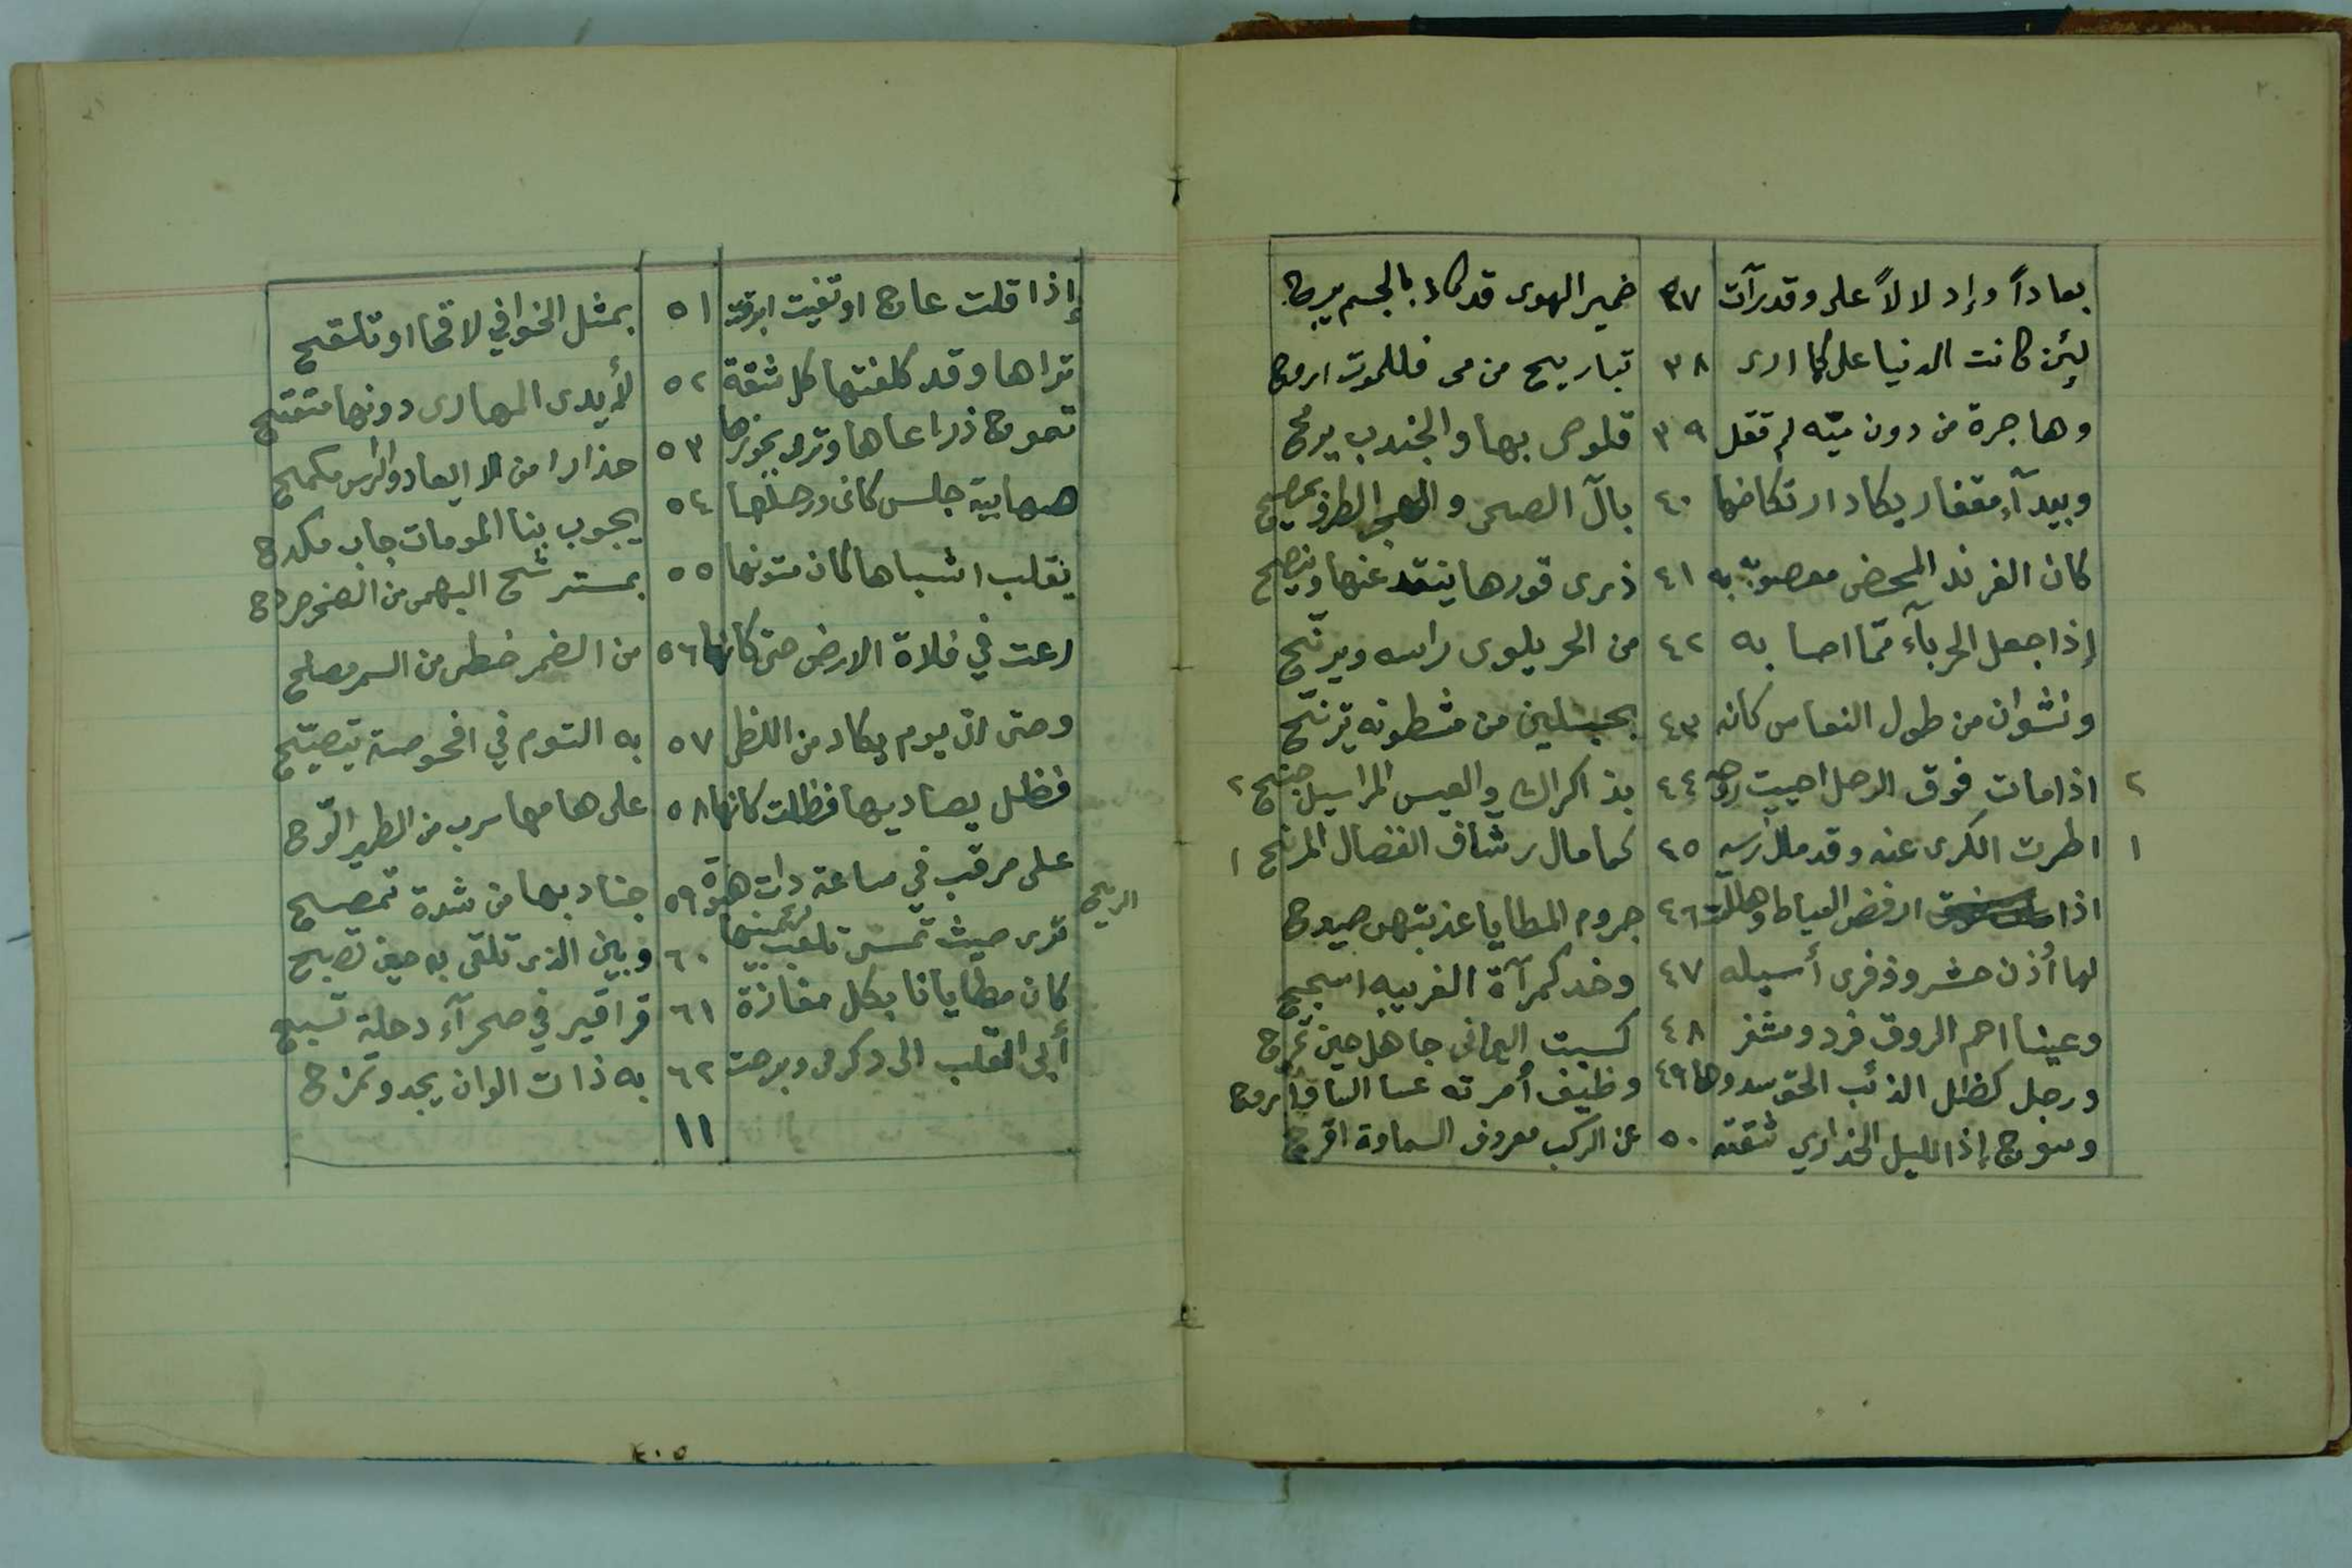 ٢٠
بعاداً وإدلالاً على وقد رآت ٣٧ ضمير الهوى قد كاد بالجسم يبرح
لئن كانت الدنيا على كما ارى ٣٨ تباريح من مى فللموت اروح
وهاجرة من دون ميّه لم تقل ٣٩ قلوصى بها والجندب يرمح
وبيدآء مقفار يكاد ارتكاضها ٤٠ بآل الضحى والهجر بالطرف يمصح
كان الفرند المحض معصوبة به ٤١ ذرى قورها ينقد عنها وينصح
إذا جعل الحربآء ممّا اصابه ٤٢ من الحر يلوى راسه ويرنّح
ونشوان من طول النعاس كانه ٤٣ بحبلين من مشطونه يترنّح
٢ اذا مات فوق الرحل احييت روحه ٤٤ بذكراك والعيس المراسيل جنح ٢
١ اطرت الكرى عنه وقد مال رسه ٤٥ كما مال رشاف الفضال المرنح ١
اذا ارفض السياط وهللت ٤٦ جروم المطايا عذبتهن صيدح
لها أذن حشر وذفرى أسيله ٤٧ وخد كمرآة الغريبه اسجح
وعينا احم الروق فرد ومشفر ٤٨ كسبت اليمانى جاهل حين تمرح
ورجل كظل الذئب الحق سدوها ٤٩ وظيف أمرته عسا الساق أروح
وسوج إذا الليل الخداري شقته ٥٠ عن الركب معروف السماوة اقرح
إذا قلت عاج او تغنيت ابرقت ٥١ بمثل الخوافي لاقحا او تلقح
تراها وقد كلفتها كل شقة ٥٢ لأيدى المهارى دونها متمتح
تموج ذراعاها وترمى بجوزها ٥٣ حذارا من الايعاد والراس مكمح
صهابية جلس كانى ورحلها ٥٤ يجوب بنا المومات جاب مكدح
يقلب اشباها كان متونها ٥٥ بمسترشح البهمى من الصخر صردح
رعت في فلاة الارض حتى كانها ٥٦ من الضمر خطى من السمر مصلح
وحتى اتى يوم يكاد من اللظى ٥٧ به التوم في افحوصة يتصيّح
فظل يصاديها فظلت كانها ٥٨ على هامها سرب من الطير لوّح
على مرقب في ساعة ذات هبوة ٥٩ جنادبها من شدة تمصح
ترى حيث تمسى تلعب الريح بينها ٦٠ وبين الذى تلقى به حين تصبح
كان مطايانا بكل مفازة ٦١ قراقير في صحرآء دجلة تسبح
أبى القلب الى ذكر مى وبرحت ٦٢ به ذات الوان يجد وتمزح
١١
٤٠٥